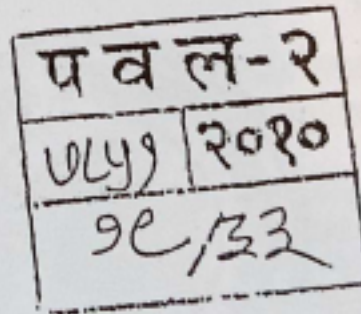 प व ल-२
७८५१ २०१०
१९/३३